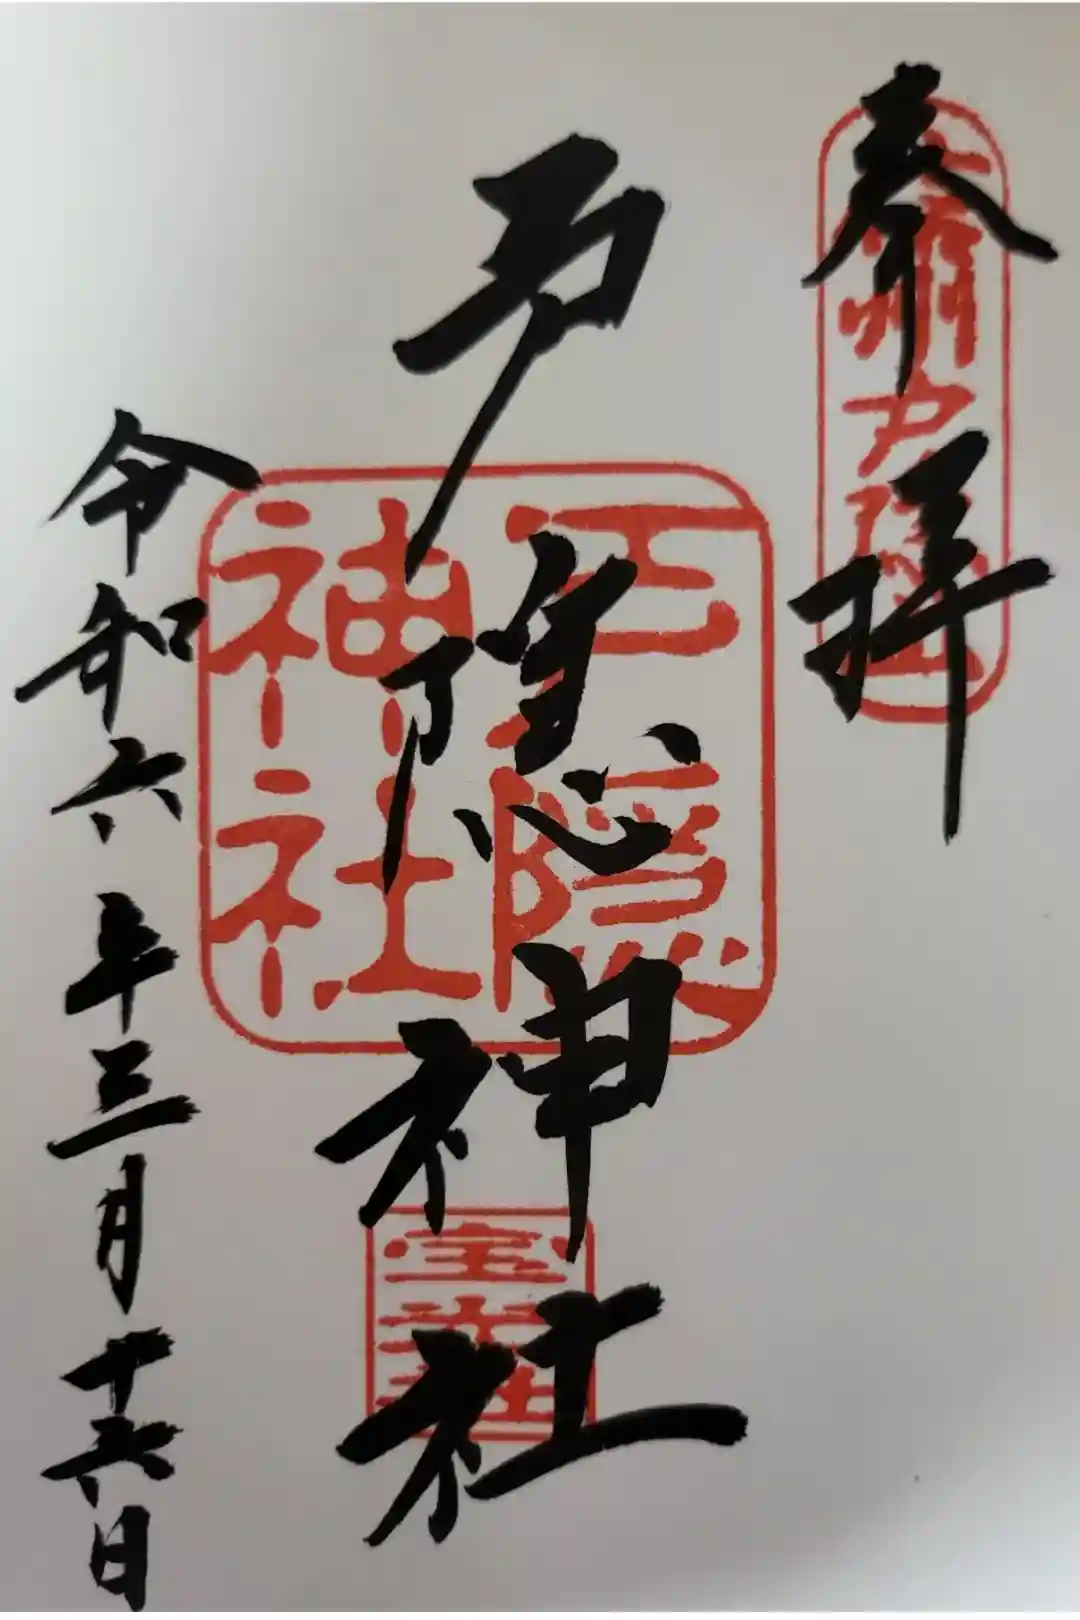 奉拝
信州戸隠山
戸隠神社
戸隠
神社
宝光社
令和六年三月十六日